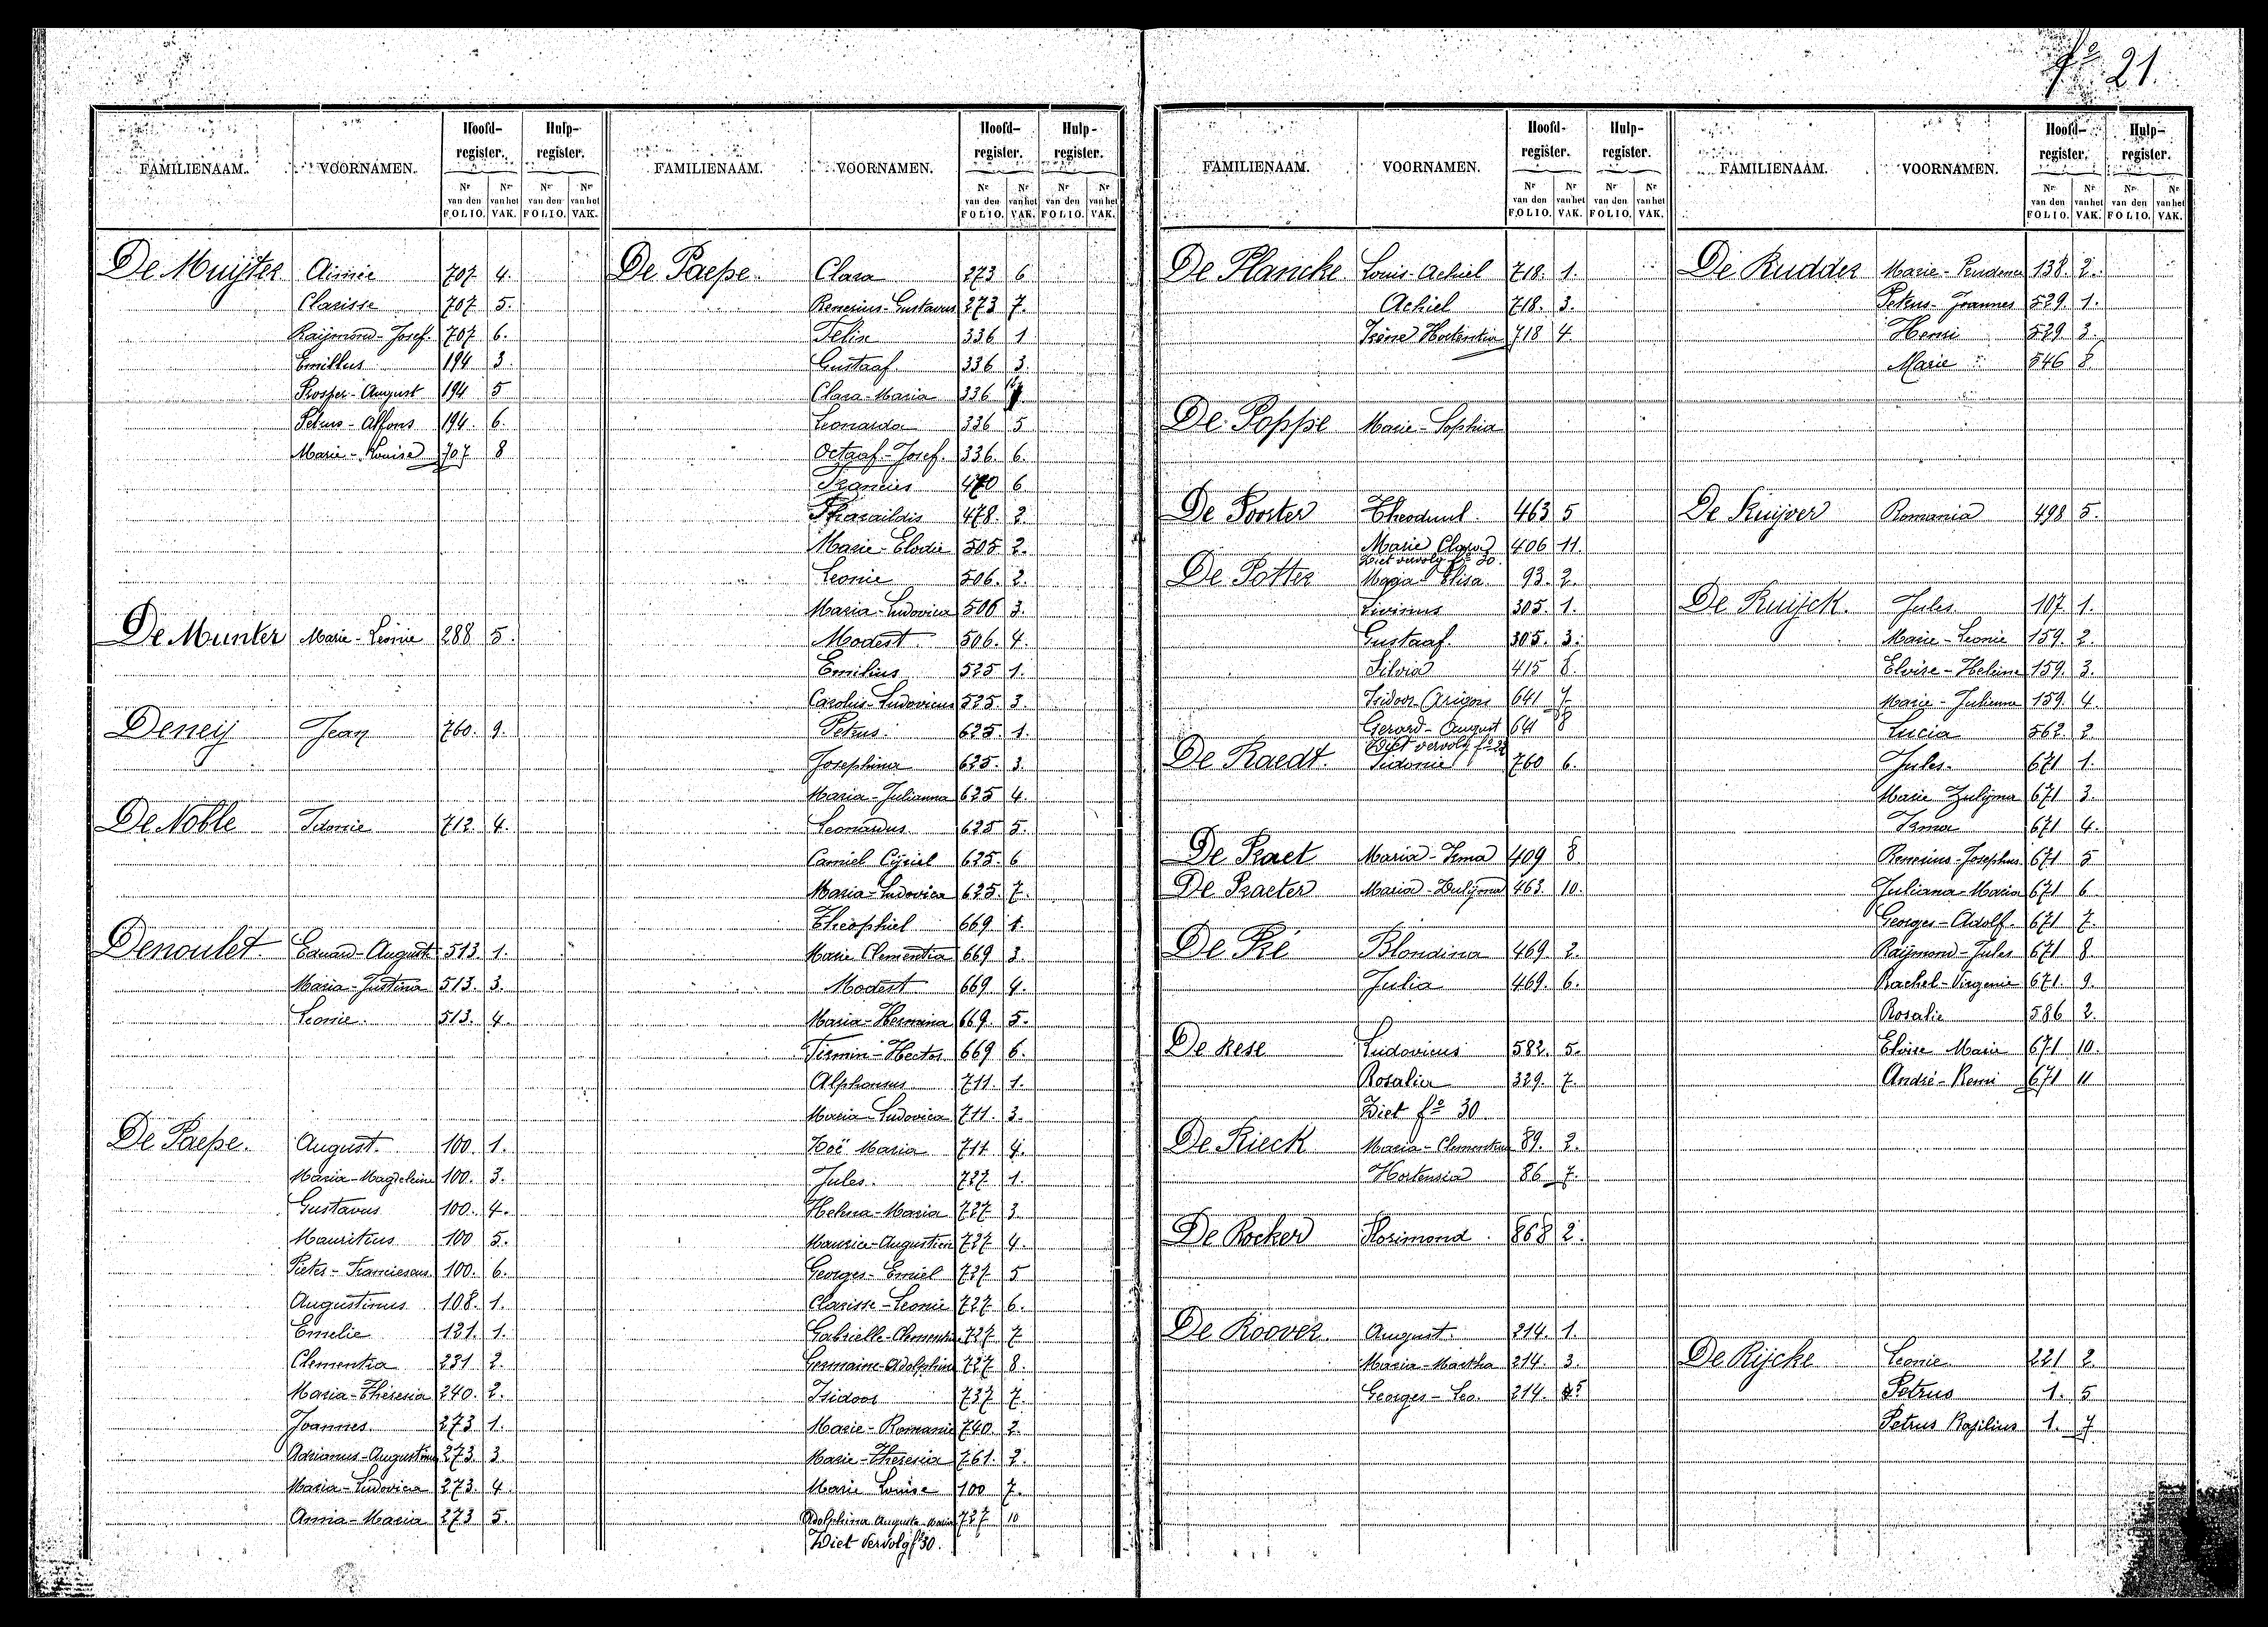 fº 21.
FAMILIENAAM. VOORNAMEN. Hoofd-register. Hulp-register.
Nr van den FOLIO. Nr van het VAK. Nr van den FOLIO. Nr van het VAK.
De Muijter Aimée 707 4.
Clarisse 707 5.
Raijmond-Josef. 707 6.
Emillus 194 3.
Prosper-August 194 5
Petrus-Alfons 194. 6.
Marie-Louise 707 8
De Munter Marie-Leonie 288 5.
Deneij Jean 760. 9.
De Noble Idonie 712. 4.
Denoulet. Eduard-August 513. 1.
Maria-Justina 513. 3.
Leonie. 513. 4.
De Paepe. August. 100. 1.
Maria-Magdeleine 100. 3.
Gustavus 100. 4.
Mauritius 100 5.
Pieter-Franciscus. 100. 6.
Augustinus 108. 1.
Emelie 121. 1.
Clementia 231 2.
Maria-Theresia 240. 2.
Joannes. 273 1.
Adrianus-Augustinus 273. 3
Maria-Ludovica 273. 4
Anna-Maria 273 5.
FAMILIENAAM. VOORNAMEN. Hoofd-register. Hulp-register.
Nr van den FOLIO. Nr van het VAK. Nr van den FOLIO. Nr van het VAK.
De Paepe. Clara 273 6
Renerius-Gustavus 273 7.
Felix 336 1
Gustaaf. 336 3.
Clara-Maria 336
Leonarda 336 5
Octaaf-Josef. 336. 6.
Francies 470 6
Pharaildis 478. 2.
Marie-Elodie 505 2.
Leonie 506. 2.
Maria-Ludovica 506 3.
Modest. 506. 4.
Emilius 525 1.
Carolus-Ludovicus 525. 3.
Petrus. 625. 1.
Josephina 625. 3.
Maria-Julianna 625 4.
Leonardus. 625 5.
Camiel Cijriel 625. 6
Maria-Ludovica 625. 7.
Theophiel 669 1.
Marie Clementia 669 3.
Modest 669. 4.
Maria-Hermina 669. 5.
Firmin-Hector. 669 6.
Alphonsus 711. 1.
Maria-Ludovica 711. 3.
Zoë Maria 711 4.
Jules. 727. 1.
Helena-Maria 727. 3
Maurice-Augustien 727. 4.
Georges-Emiel 727. 5
Clarisse-Leonie 727. 6.
Gabrielle-Clementia 727. 7
Germaine-Adolphina 727 8.
Isidoor 737 7.
Marie-Romanie 740. 2.
Marie-Theresia 761. 2.
Marie Louise 100 7.
Adolphina Augusta Maria 727 10
Ziet vervolg fº 30.
FAMILIENAAM. VOORNAMEN. Hoofd-register. Hulp-register.
Nr van den FOLIO. Nr van het VAK. Nr van den FOLIO. Nr van het VAK.
De Plancke Louis-Achiel 718. 1.
Achiel 718. 3.
Irène Hortentia 718 4.
De Poppe Marie-Sophia
De Poorter Theoduul. 463 5
Marie Clara 406 11.
Ziet vervolg fº 30.
De Potter Maria Elisa. 93. 2.
Livinus 305. 1.
Gustaaf. 305. 3.
Silvia 415 8.
Isidoor 641 7
Gerard-August 641 8
Ziet vervolg fº
De Raedt. Sidonie 760 6.
De Praet Maria-Irma 409 8
De Praeter Maria-Zulijma 463. 10.
De Pré Blondina 469 2.
Julia 469. 6.
De Rese Ludovicus 582. 5.
Rosalia 329. 7.
Ziet fº 30
De Rieck Maria-Clementina 89. 2.
Hortensia 86 7.
De Rocker Florimond. 868 2.
De Roover August. 214. 1.
Maria-Martha 214. 3.
Georges-Leo. 214. 5
FAMILIENAAM. VOORNAMEN. Hoofd-register. Hulp-register.
Nr van den FOLIO. Nr van het VAK. Nr van den FOLIO. Nr van het VAK.
De Rudder Marie-Prudence 138. 2.
Petrus-Joannes 529. 1.
Henri 529 3.
Marie 546 8.
De Ruijver Romania 498 5.
De Ruijck. Jules. 107. 1.
Marie-Leonie 159. 2.
Eloise-Helène 159. 3.
Marie-Julienne 159. 4.
Lucia 562. 2.
Jules. 671 1.
Marie Zulijma 671 3.
Irma 671 4.
Renerius-Josephus 671 5
Juliana-Maria 671 6
Georges-Adolf. 671 7.
Raijmond-Jules 671 8.
Rachel-Virgenie 671. 9.
Rosalie 586 2.
Eloise Marie 671 10.
André-Remi 671 11
De Rijcke Leonie 221 2
Petrus 1. 5
Petrus Basilius 1. 7